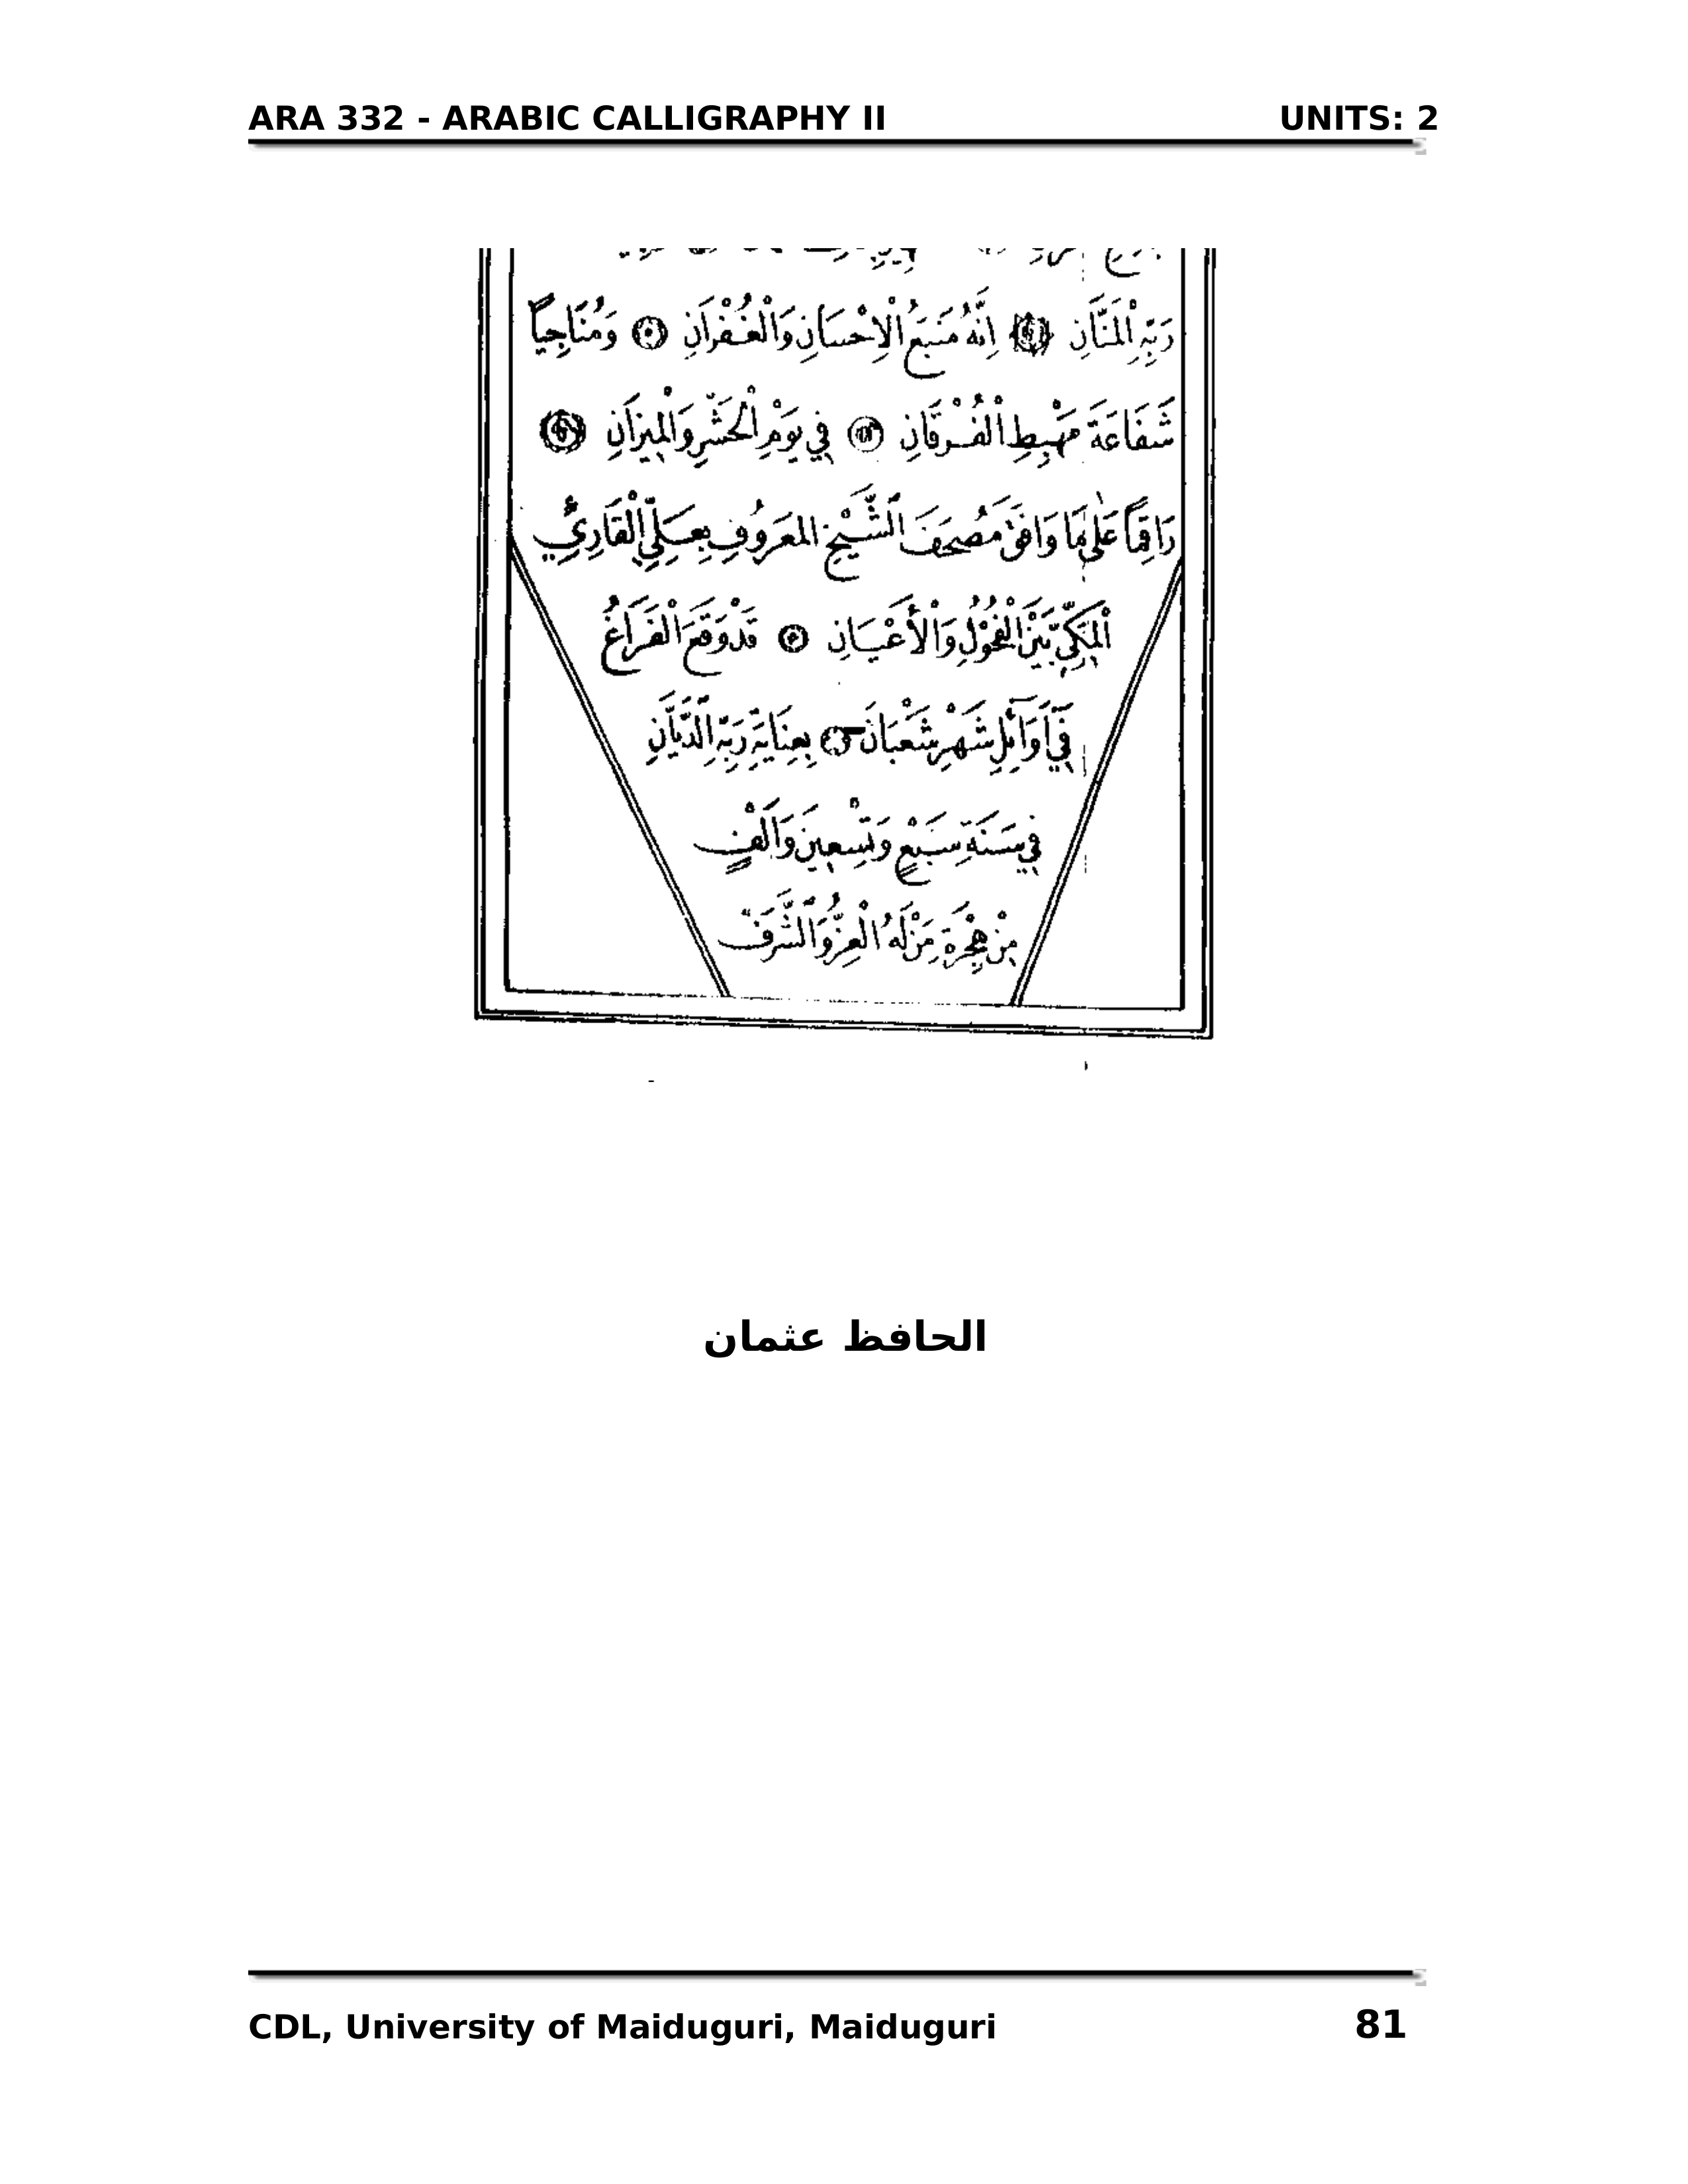 ARA 332 - ARABIC CALLIGRAPHY II UNITS: 2
رَبِّهِ الْمَنَّانِ اِنَّهُ مَنْبَعُ الْاِحْسَانِ وَالْغُفْرَانِ وَمُنَاجِيًا
شَفَاعَةَ مَهْبِطِ الْفُرْقَانِ فِي يَوْمِ الْحَشْرِ وَالْمِيزَانِ
رَاقِمًا عَلٰى مَا وَافَقَ مَصْحَفَ الشَّيْخِ المَعْرُوفِ بِعَلِيِّ الْقَارِئِ
الْمَكِّيِّ بَيْنَ الْفُحُولِ وَالْأَعْيَانِ قَدْ وَقَعَ الْفَرَاغُ
فِي أَوَائِلِ شَهْرِ شَعْبَانَ بِعِنَايَةِ رَبِّهِ الدَّيَّانِ
فِي سَنَةِ سَبْعٍ وَتِسْعِينَ وَاَلْفٍ
مِنْ هِجْرَةِ مَنْ لَهُ الْعِزُّ وَالشَّرَفُ
الحافظ عثمان
CDL, University of Maiduguri, Maiduguri 81